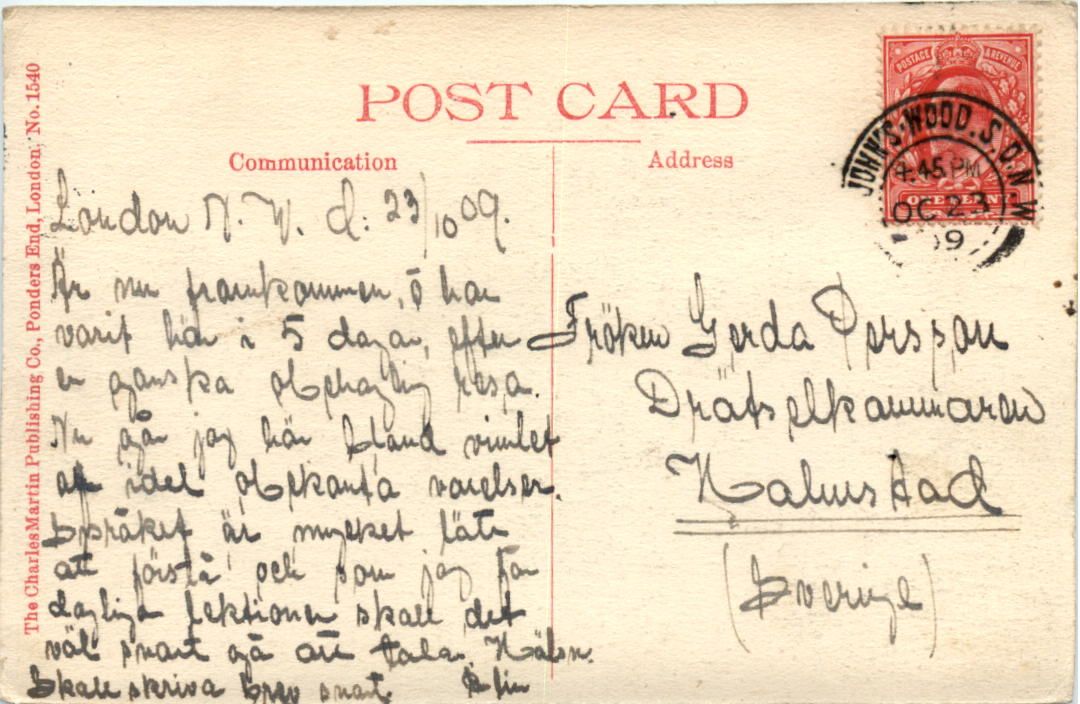 POST CARD
Communication
Address
The Charles Martin Publishing Co., Ponders End, London, No. 1540
POSTAGE & REVENUE
ONE PENNY
JOHN'S·WOOD.S.O.N.W
4.45 PM
OC 23
09
London N. W. d: 23/10 09.
Är nu framkommen, o har
varit här i 5 dagar, efter
en ganska obehaglig resa.
Nu går jag här bland vimlet
af idel obekanta varelser.
Språket är mycket lätt
att förstå, och som jag får
dagliga lektioner skall det
väl snart gå att tala. Hälsn.
Skall skriva brev snart.
Fröken Gerda Persson
Drätselkammaren
Halmstad
(Sverige)